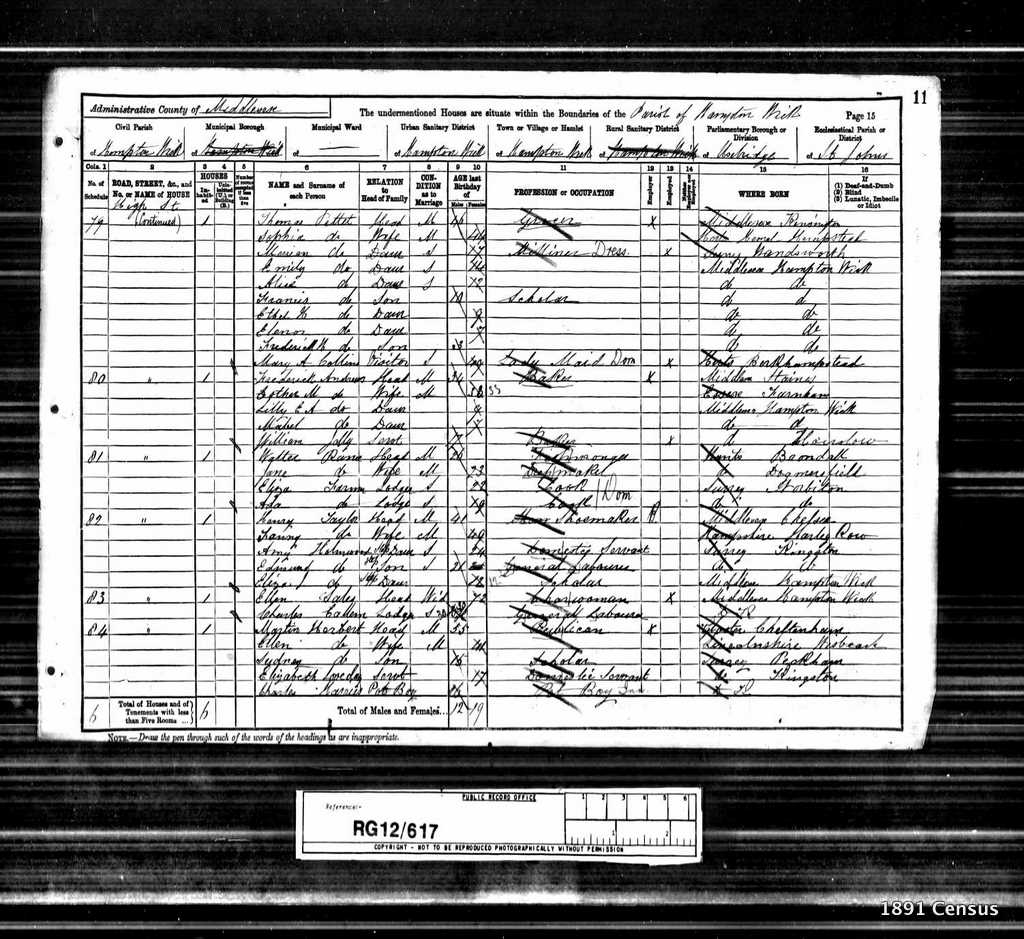 11
Administrative County of Middlesex
The undermentioned Houses are situate within the Boundaries of the Parish of Hampton Wick
Page 15
Civil Parish
Municipal Borough
Municipal Ward
Urban Sanitary District
Town or Village or Hamlet
Rural Sanitary District
Parliamentary Borough or Division
Ecclesiastical Parish or District
of Hampton Wick of Hampton Wick of of Hampton Wick of Hampton Wick of Hampton Wick of Uxbridge of St Johns
Cols. 1 2 3 4 5 6 7 8 9 10 11 12 13 14 15 16
No. of Schedule
ROAD, STREET, &c., and No. or NAME of HOUSE
HOUSES
Inhabited
NAME and Surname of each Person
RELATION to Head of Family
CONDITION as to Marriage
AGE last Birthday of
Males Females
PROFESSION or OCCUPATION
Employer
Employed
WHERE BORN
If
(1) Deaf-and-Dumb
(2) Blind
(3) Lunatic, Imbecile or Idiot
High St
79 (Continued) 1 Thomas Head M Grocer X Middlesex Kensington
Sophia do Wife M 44 Hemel Hempstead
do Daur S 17 Milliner Dress. x Wandsworth
Emily do Daur S 14 Middlesex Hampton Wick
Alice do Daur S 12 do do
Francis do Son 10 Scholar do d
Ethel do Daur 9 do do
Elenor do Daur 7 do do
Frederick do Son 3 do do
Mary A Collins Visitor S Lady Maid Dom x Herts Berkhampstead
80 " 1 Frederick Andrews Head M 34 Baker X Middlesex Staines
Esther M do Wife M 33 Farnham
Lilly E A do Daur Middlesex Hampton Wick
Mabel do Daur 7 do d
William Jolly Servt 17 Baker x d Hounslow
81 " 1 Walter Head M
Jane do Wife M 23 Dogmersfield
Eliza Lodger S 22 Cook Dom Surrey Surbiton
Ada do Lodger S 19 Cook do do
82 " 1 Henry Taylor Head M 41 Shoemaker Middlesex Chelsea
Fanny do Wife M 49 Hampshire Hartley Row
Amy Holmwood Daur S 24 Domestic Servant Surrey Kingston
Edmund do Son S 21 General Labourer d d
Eliza do Daur Scholar Middlesex Hampton Wick
83 " 1 Ellen Head Wid 72 Charwoman x Middlesex Hampton Wick
Charles Lodger S General Labourer
84 " 1 Martin Herbert Head M 35 Publican X Cheltenham
Ellen do Wife M Lincolnshire Wisbeach
Sydney do Son 15 Scholar Surrey Peckham
Elizabeth Servt 17 Domestic Servant Kingston
Charles Harris Pot Boy 16 Pot Boy
6 Total of Houses and of Tenements with less than Five Rooms ... 6 Total of Males and Females... 12 19
NOTE.—Draw the pen through such of the words of the headings as are inappropriate.
PUBLIC RECORD OFFICE
Reference:-
RG12/617
1 2 3 4 5 6
1 2
COPYRIGHT - NOT TO BE REPRODUCED PHOTOGRAPHICALLY WITHOUT PERMISSION
1891 Census